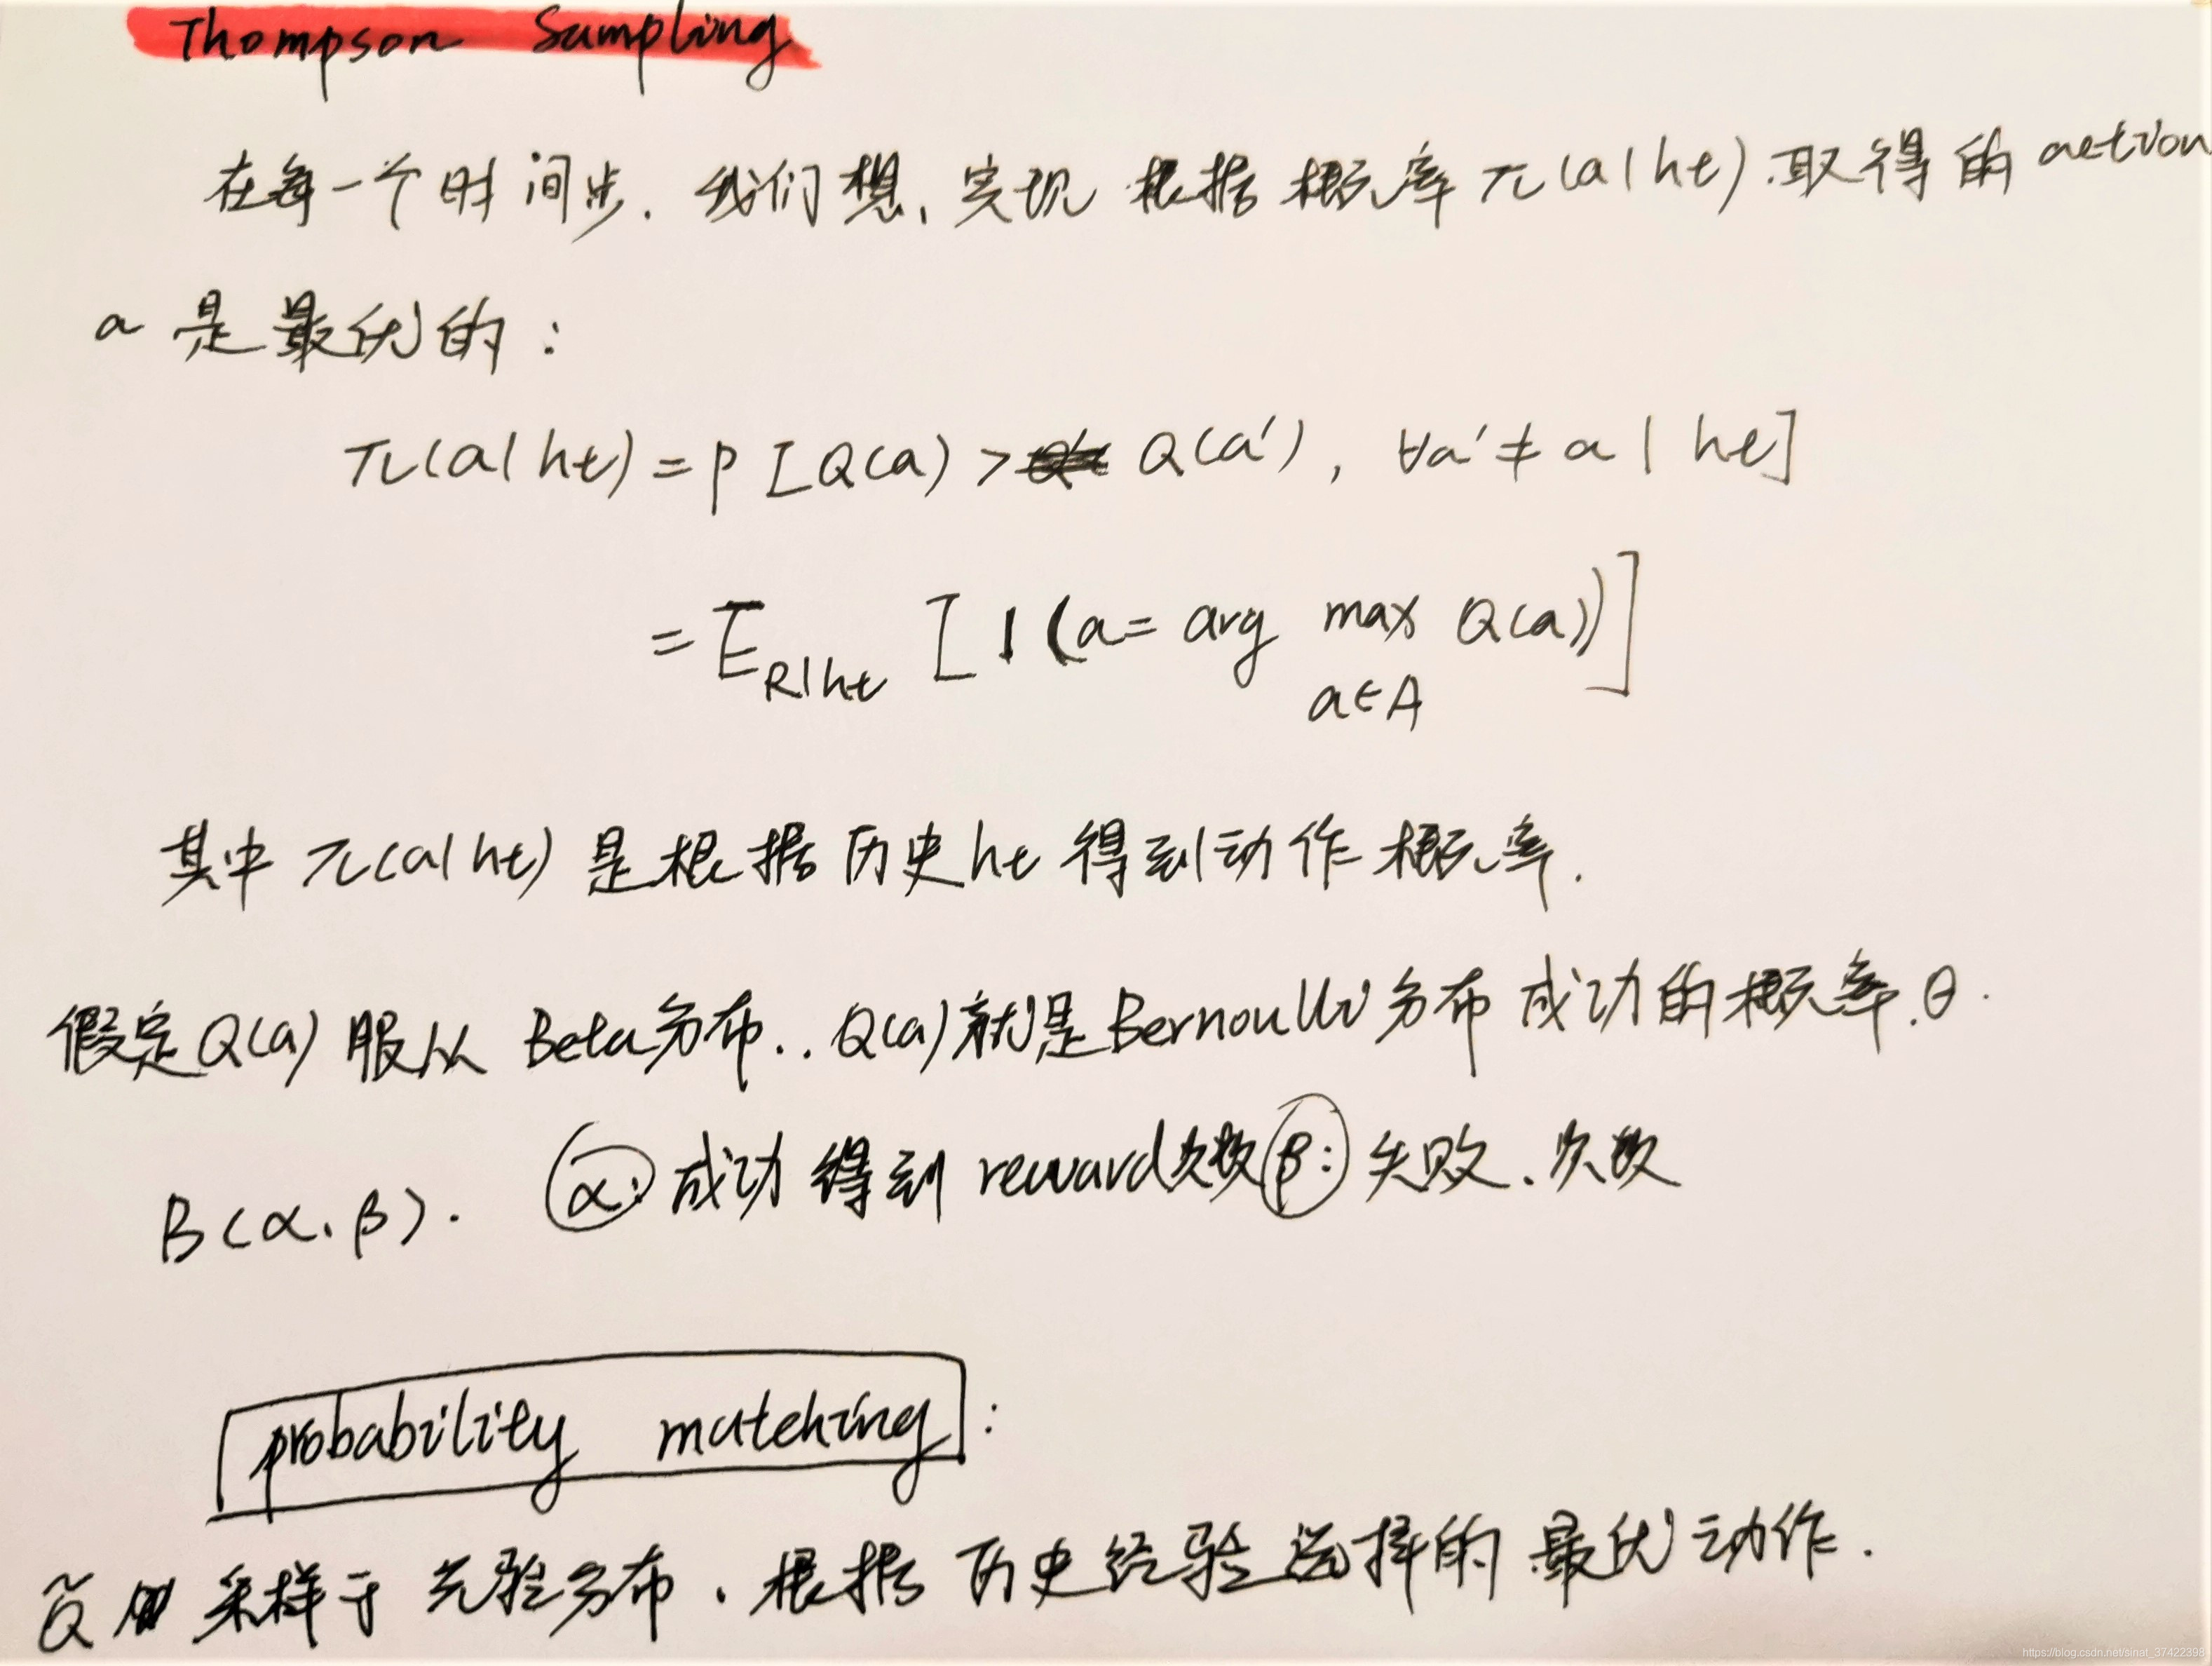 Thompson Sampling
在每一个时间步. 我们想、实现 根据概率 π(a|ht) 取得的 action
a 是最优的:
π(a|ht) = p [Q(a) > Q(a'), ∀a' ≠ a | ht]
= E_{R|ht} [1(a = arg max Q(a))]
a∈A
其中 π(a|ht) 是根据历史 ht 得到动作概率.
假定 Q(a) 服从 Beta 分布.. Q(a) 就是 Bernoulli 分布 成功的概率.θ.
B(α、β). α: 成功得到 reward 次数 β: 失败、次数
probability matching:
Q̃ 采样于先验分布. 根据历史经验选择的最优动作.
https://blog.csdn.net/sinat_37422398